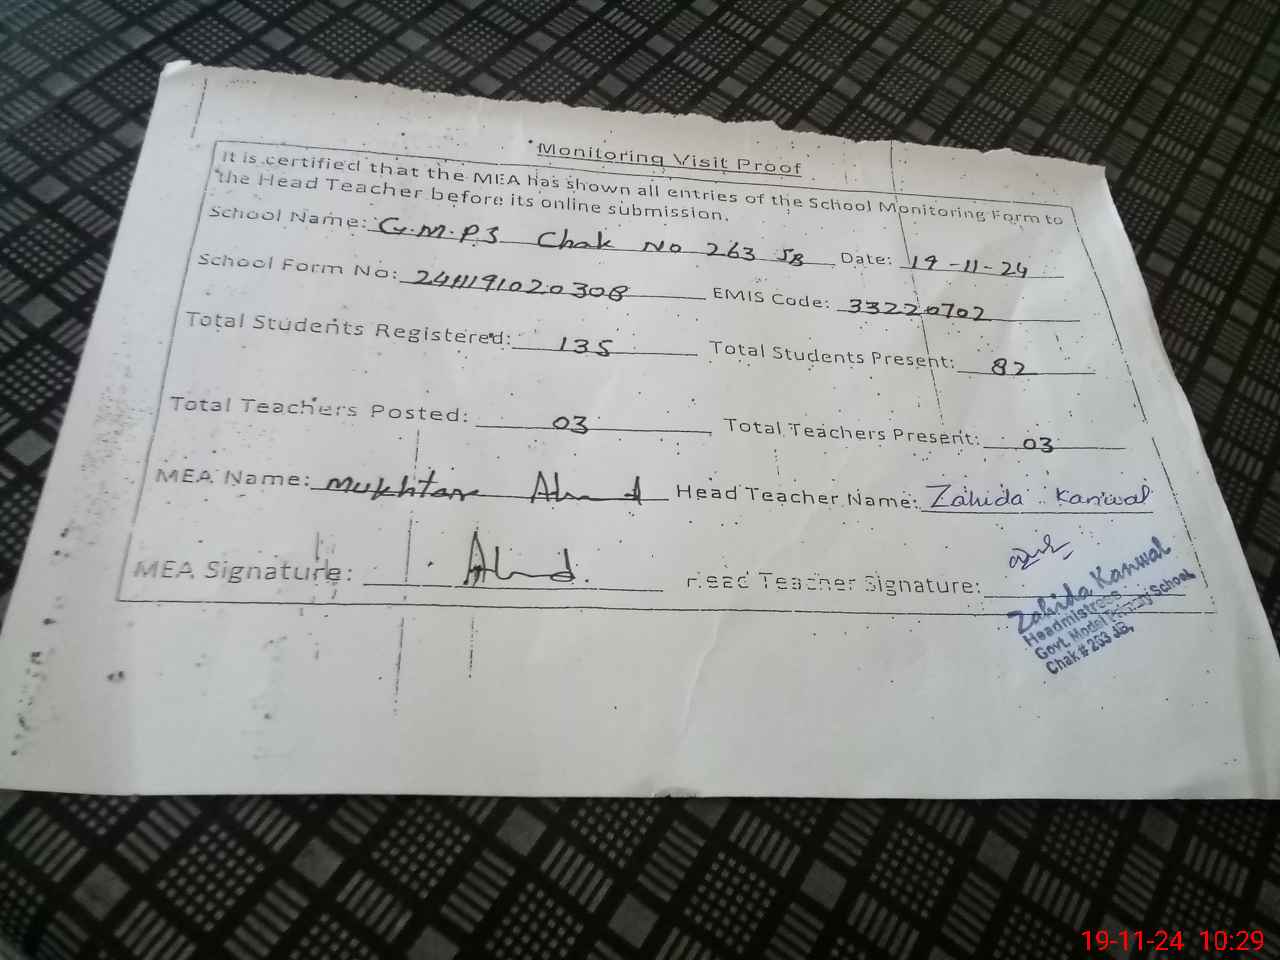 Monitoring Visit Proof
It is certified that the MEA has shown all entries of the School Monitoring Form to
the Head Teacher before its online submission.
School Name: G.M.P.S Chak No 263 JB Date: 19-11-24
School Form No: 2411191020308 EMIS Code: 33220702
Total Students Registered: 135 Total Students Present: 82
Total Teachers Posted: 03 Total Teachers Present: 03
MEA Name: Mukhtar Ahmad Head Teacher Name: Zahida Kanwal
MEA Signature: Head Teacher Signature:
Zahida Kanwal
Headmistress
Govt. Model Primary School
Chak # 263 JB,
19-11-24 10:29